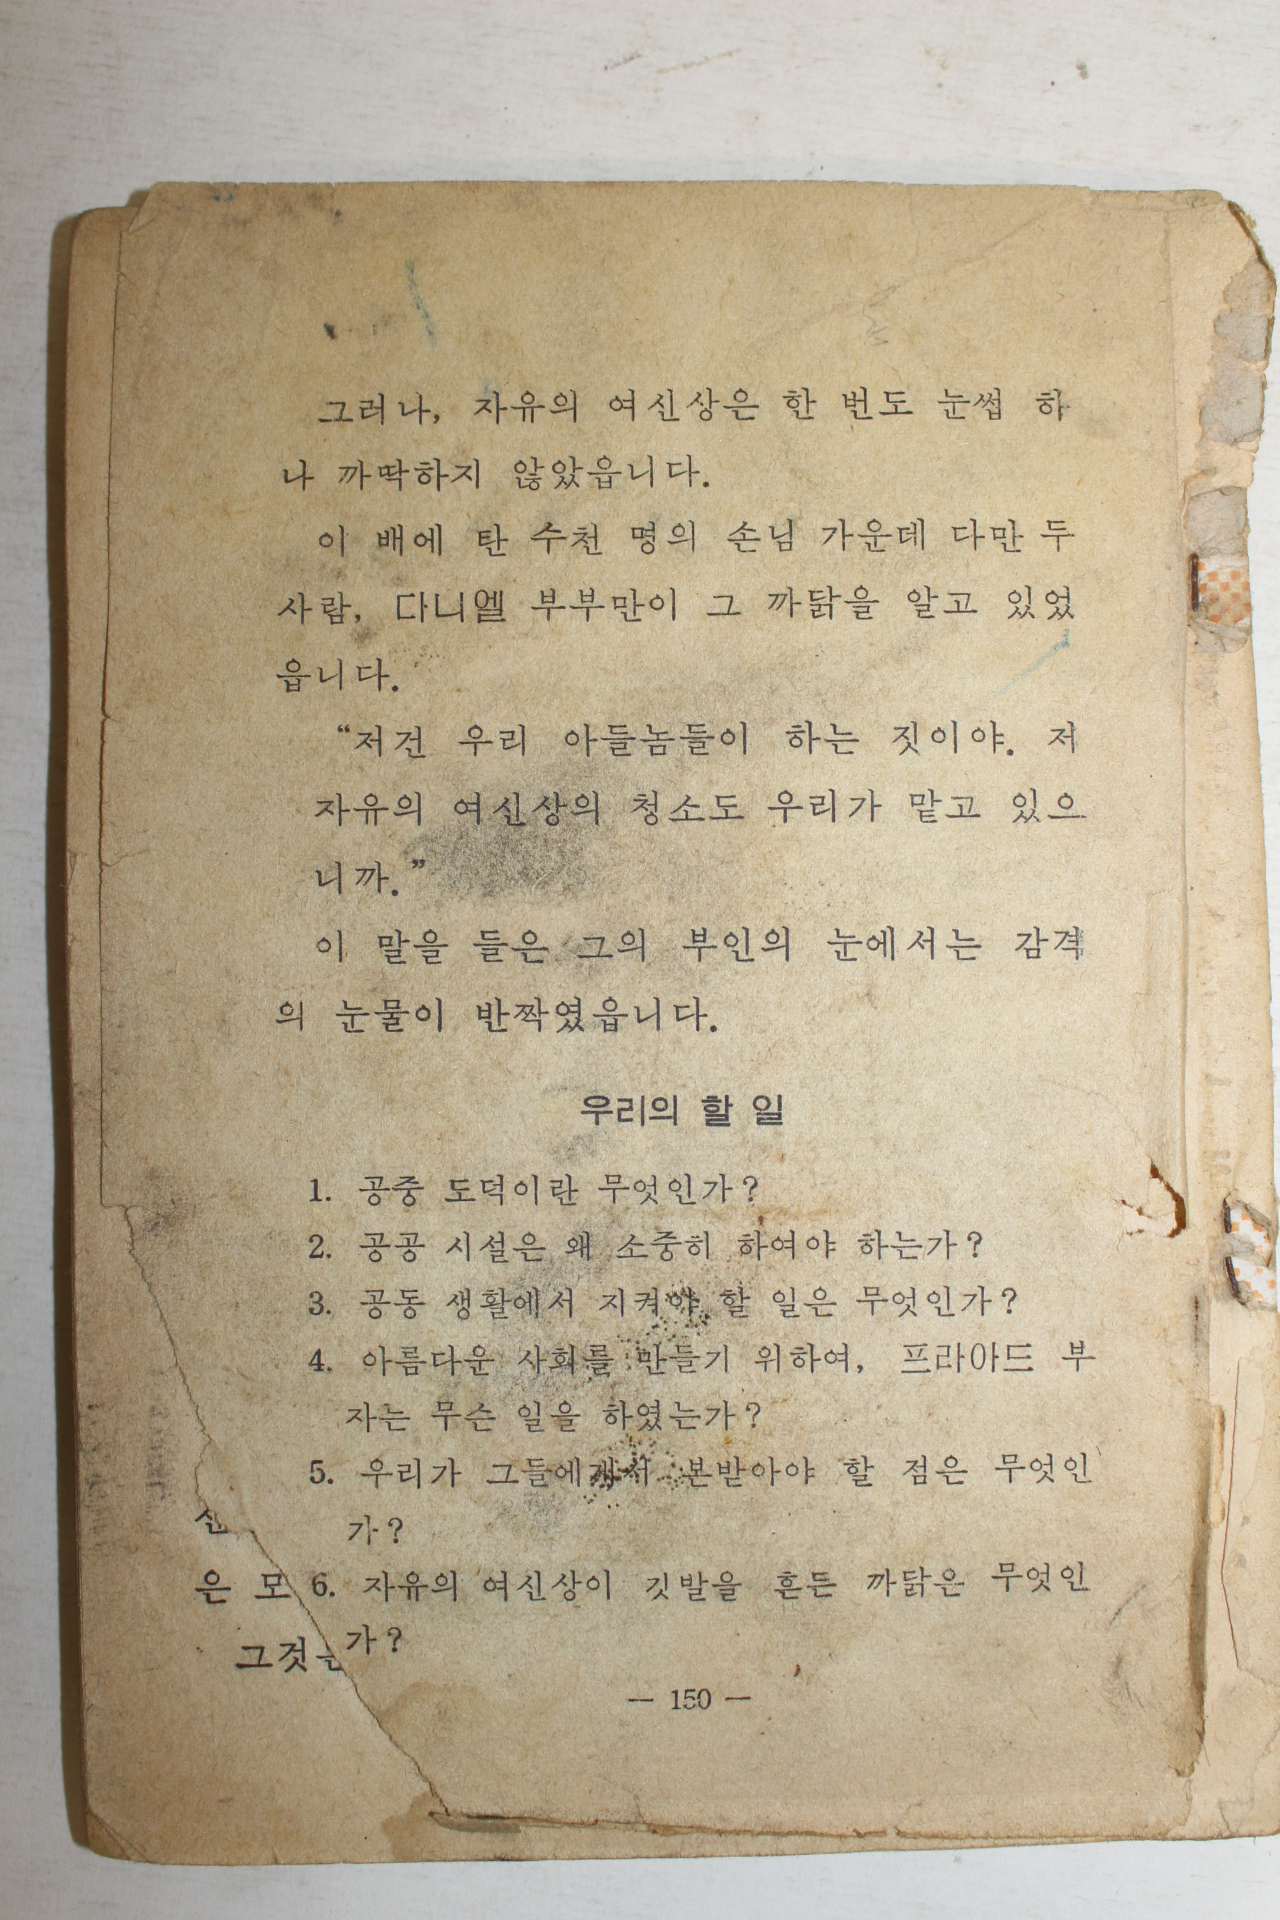 그러나, 자유의 여신상은 한 번도 눈썹 하
나 까딱하지 않았읍니다.
이 배에 탄 수천 명의 손님 가운데 다만 두
사람, 다니엘 부부만이 그 까닭을 알고 있었
읍니다.
“저건 우리 아들놈들이 하는 짓이야. 저
자유의 여신상의 청소도 우리가 맡고 있으
니까.”
이 말을 들은 그의 부인의 눈에서는 감격
의 눈물이 반짝였읍니다.
우리의 할 일
1. 공중 도덕이란 무엇인가?
2. 공공 시설은 왜 소중히 하여야 하는가?
3. 공동 생활에서 지켜야 할 일은 무엇인가?
4. 아름다운 사회를 만들기 위하여, 프라아드 부
자는 무슨 일을 하였는가?
5. 우리가 그들에게서 본받아야 할 점은 무엇인
가?
은 모
6. 자유의 여신상이 깃발을 흔든 까닭은 무엇인
가?
그것
— 150 —